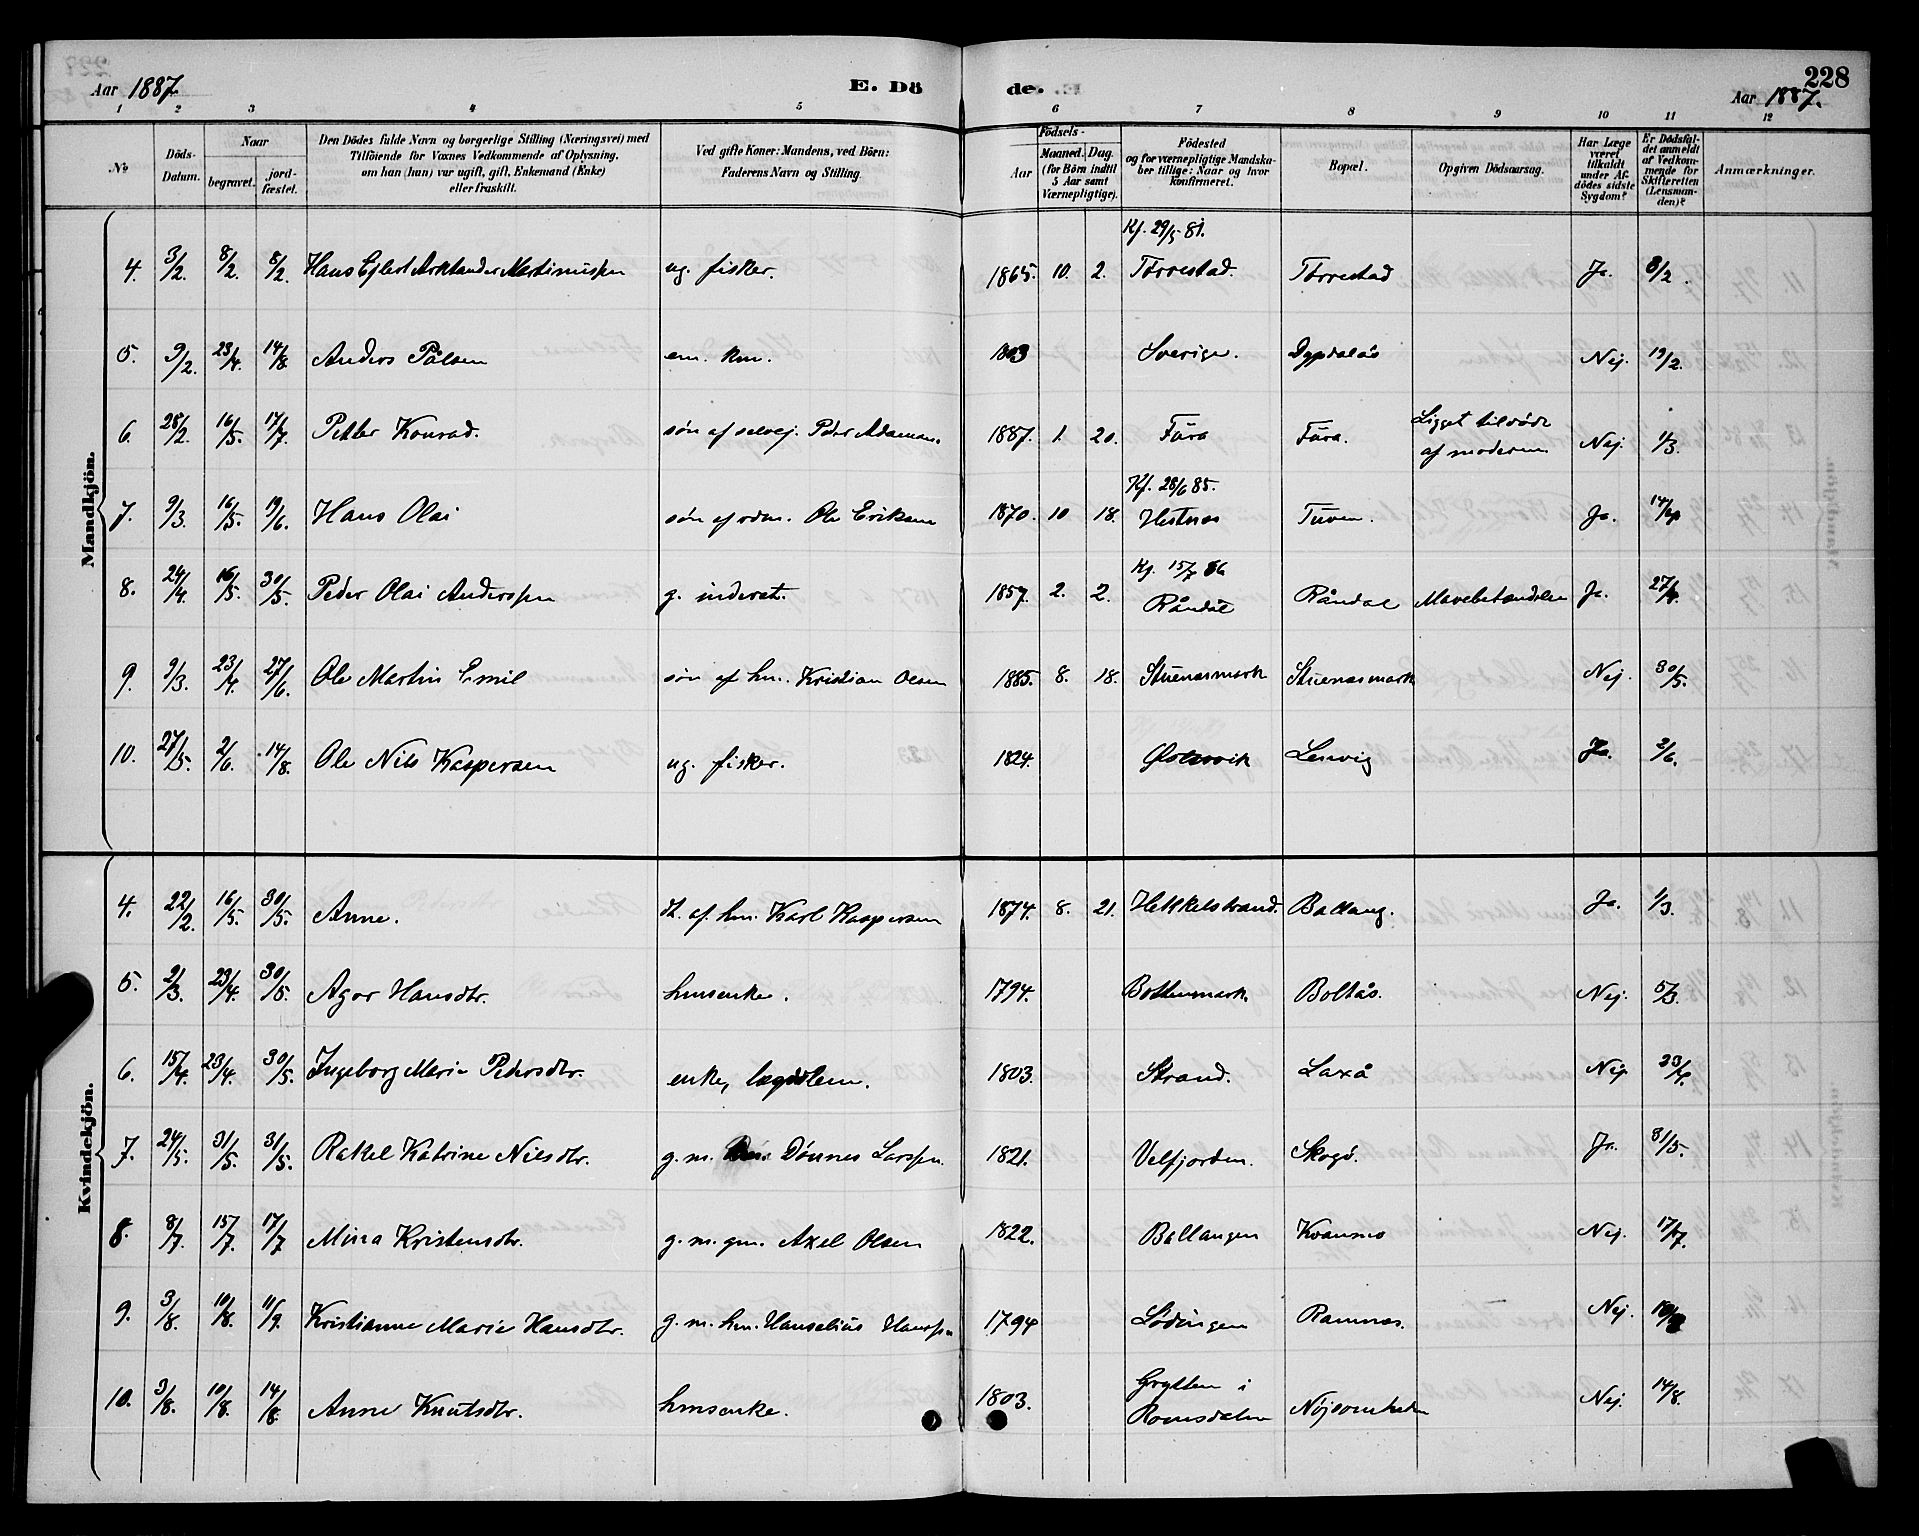 Aar 1887. E. Dö de. 228
Aar 1887.
1 2 3 4 5 6 7 8 9 10 11 12
No
Döds-Datum.
Naar
begravet.
jord-fæstet.
Den Dödes fulde Navn og borgerlige Stilling (Næringsvei) med
Tilföiende for Voxnes Vedkommende af Oplysning,
om han (hun) var ugift, gift, Enkemand (Enke)
eller fraskilt.
Ved gifte Koner: Mandens, ved Börn:
Faderens Navn og Stilling.
Födsels-
Aar
Maaned. Dag.
(for Börn indtil
5 Aar samt
Værnepligtige).
Födested
og for værnepligtige Mandska-
ber tillige: Naar og hvor
konfirmeret.
Bopæl.
Opgiven Dödsaarsag.
Har Læge
været
tilkaldt
under Af-
dödes sidste
Sygdom?
Er Dödsfal-
det anmeldt
af Vedkom-
mende for
Skifteretten
(Lensman-
den)?
Anmærkninger.
Mandkjön.
Kf. 29/5 81.
4. 3/2. 8/2. 8/2. Hans Ejlert Arktander Martinussen ug. fisker. 1865. 10. 2. Tørrestad. Tørrestad Ja. 8/2.
5. 9/2. 23/4. 14/8. Anders Pålsen em. km. 1803 Sverige. Dypdalås Nej. 19/2.
6. 28/2. 16/5. 17/7. Petter Konrad. søn af selvej. Peder Adamsen. 1887. 1. 20. Fura Fura. Ligget tildøde
af moderen Nej. 1/3.
Kf. 28/6 85.
7. 9/3. 16/5. 19/6. Hans Olai søn af Ole Eriksen 1870. 10 18. Hestnes Tuven. Ja. 14/4
Kf. 15/7 86
8. 24/4. 16/5. 30/5. Peder Olai Anderssen g. inderst. 1857. 2. 2. Råndal Råndal Mavebetændelse Ja. 27/4.
9. 9/3. 23/4. 27/6. Ole Martin Emil søn af hm. Kristian Olsen 1885. 8. 18. Stuenesmark Stuenesmark Nej. 30/5.
10. 27/5. 2/6. 14/8. Ole Nils Kaspersen ug. fisker. 1824. Østervik Lervig Ja. 2/6.
Kvindekjön.
4. 22/2. 16/5. 30/5. Anne. dt. af hm. Karl Kaspersen 1874. 8. 21. Hekkelstrand. Ballang. Ja. 1/3.
5. 2/3. 23/4. 30/5. Agor Hansdtr. hmsenke. 1794. Bottenmark. Boltås. Nej. 5/3.
6. 15/4. 23/4. 30/5. Ingeborg Marie Pedersdtr. enke, lægdslem. 1803. Strand. Laxå Nej 23/4.
7. 24/5. 31/5. 31/5. Rakel Katrine Nilsdtr. g. m. Dønnes Larssen. 1821. Velfjorden. Skogø. Ja. 31/5.
8. 8/7. 15/7. 17/7 Mina Kristensdtr. g. m. gm. Axel Olsen 1822. Ballangen Kvanmo Nej. 17/7.
9. 3/8. 10/8. 11/9. Kristianne Marie Hansdtr. g. m. hm. Hanselius Hanssen 1794 Lødingen Ramnes. Nej.
10. 3/8. 10/8. 14/8 Anne Knutsdtr. hmsenke. 1803. Grytten i
Romsdalen Nøjsomheden Nej. 14/8.